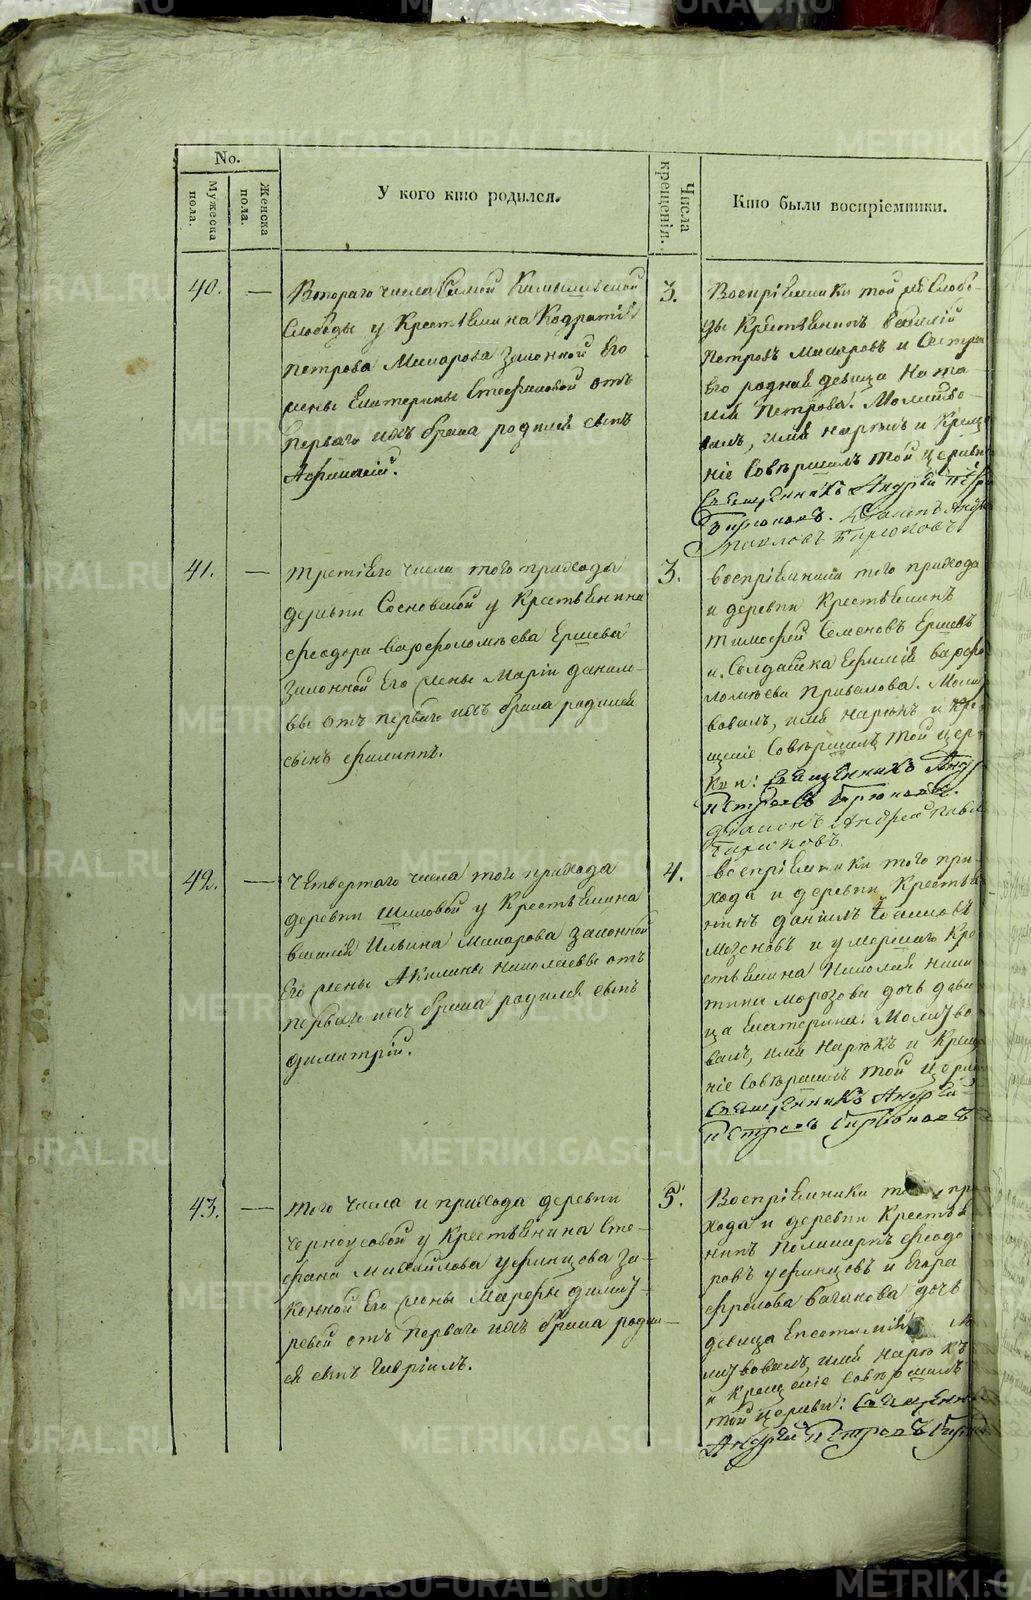 No.
Мужеска пола.
Женска пола.
У кого кто родился.
Числа крещенія.
Кто были воспріемники.
40. —
Втораго числа самой Камышевской
Слободы у Крестьянина Кодратія
Петрова Макарова законной Его
жены Екатерины Стефановой отъ
перваго ихъ брака родился сынъ
Афанасій.
3.
Воспріемники той же Слобо-
ды Крестьянинъ Василій
Петровъ Макаровъ и Сестра
Его родная девица Ната-
лія Петрова. Молитво-
валъ, имя нарѣкъ и Креще
ніе Совѣршилъ той церкви
Священникъ Андрей Петр
Бирюковъ.
Павловъ Бирюковъ
41. —
третіего числа того прихода
деревни Сосновской у Крестьянина
Феодора Варфоломѣева Ершева
законной Его жены Маріи Данило-
вы отъ перваго ихъ брака родился
сынъ Филиппъ.
3.
воспріемники того прихода
и деревни Крестьянинъ
Тимофей Семеновъ Ершевъ
и Солдатка Ефимія Варфо
ломѣева Привалова. Молит
вовалъ, имя нарѣкъ и Кре-
щеніе Совѣршилъ той цер-
кви: Священникъ Анд
Петровъ Бирюковъ.
Діаконъ Андрей Павл
Бирюковъ.
42. —
Четвертаго числа того прихода
деревни Шиловой у Крестьянина
Василія Ильина Макарова законной
Его жены Акилины Николаевы отъ
перваго ихъ брака родился сынъ
Димитрій.
4.
воспріемники того при-
хода и деревни Крестья
нинъ Даніилъ
и умершаго Кре
стьянина Николая Ники
тина Морозова дочь деви
ца Екатерина. Молитво
валъ, имя Нарѣкъ и Крещ
ніе Совѣршилъ той Церкв
Священникъ Андрей
Петровъ Бирюковъ
43. —
того числа и прихода деревни
Черноусовой у Крестьянина Сте-
фана Михайлова Уфинцова за-
конной Его жены Марфы Димит-
ревой отъ перваго ихъ брака родил-
ся сынъ Гавріилъ.
5.
Воспріемники того при
хода и деревни Крестья
нинъ Поликарпъ Феодо
ровъ Уфинцовъ и Егора
Фролова Ваганова дочь
девица
литвовалъ, имя нарѣкъ
и Крещеніе Совѣршилъ
той церкви: Священни
Андрей Петровъ Бирю
METRIKI.GASO-URAL.RU